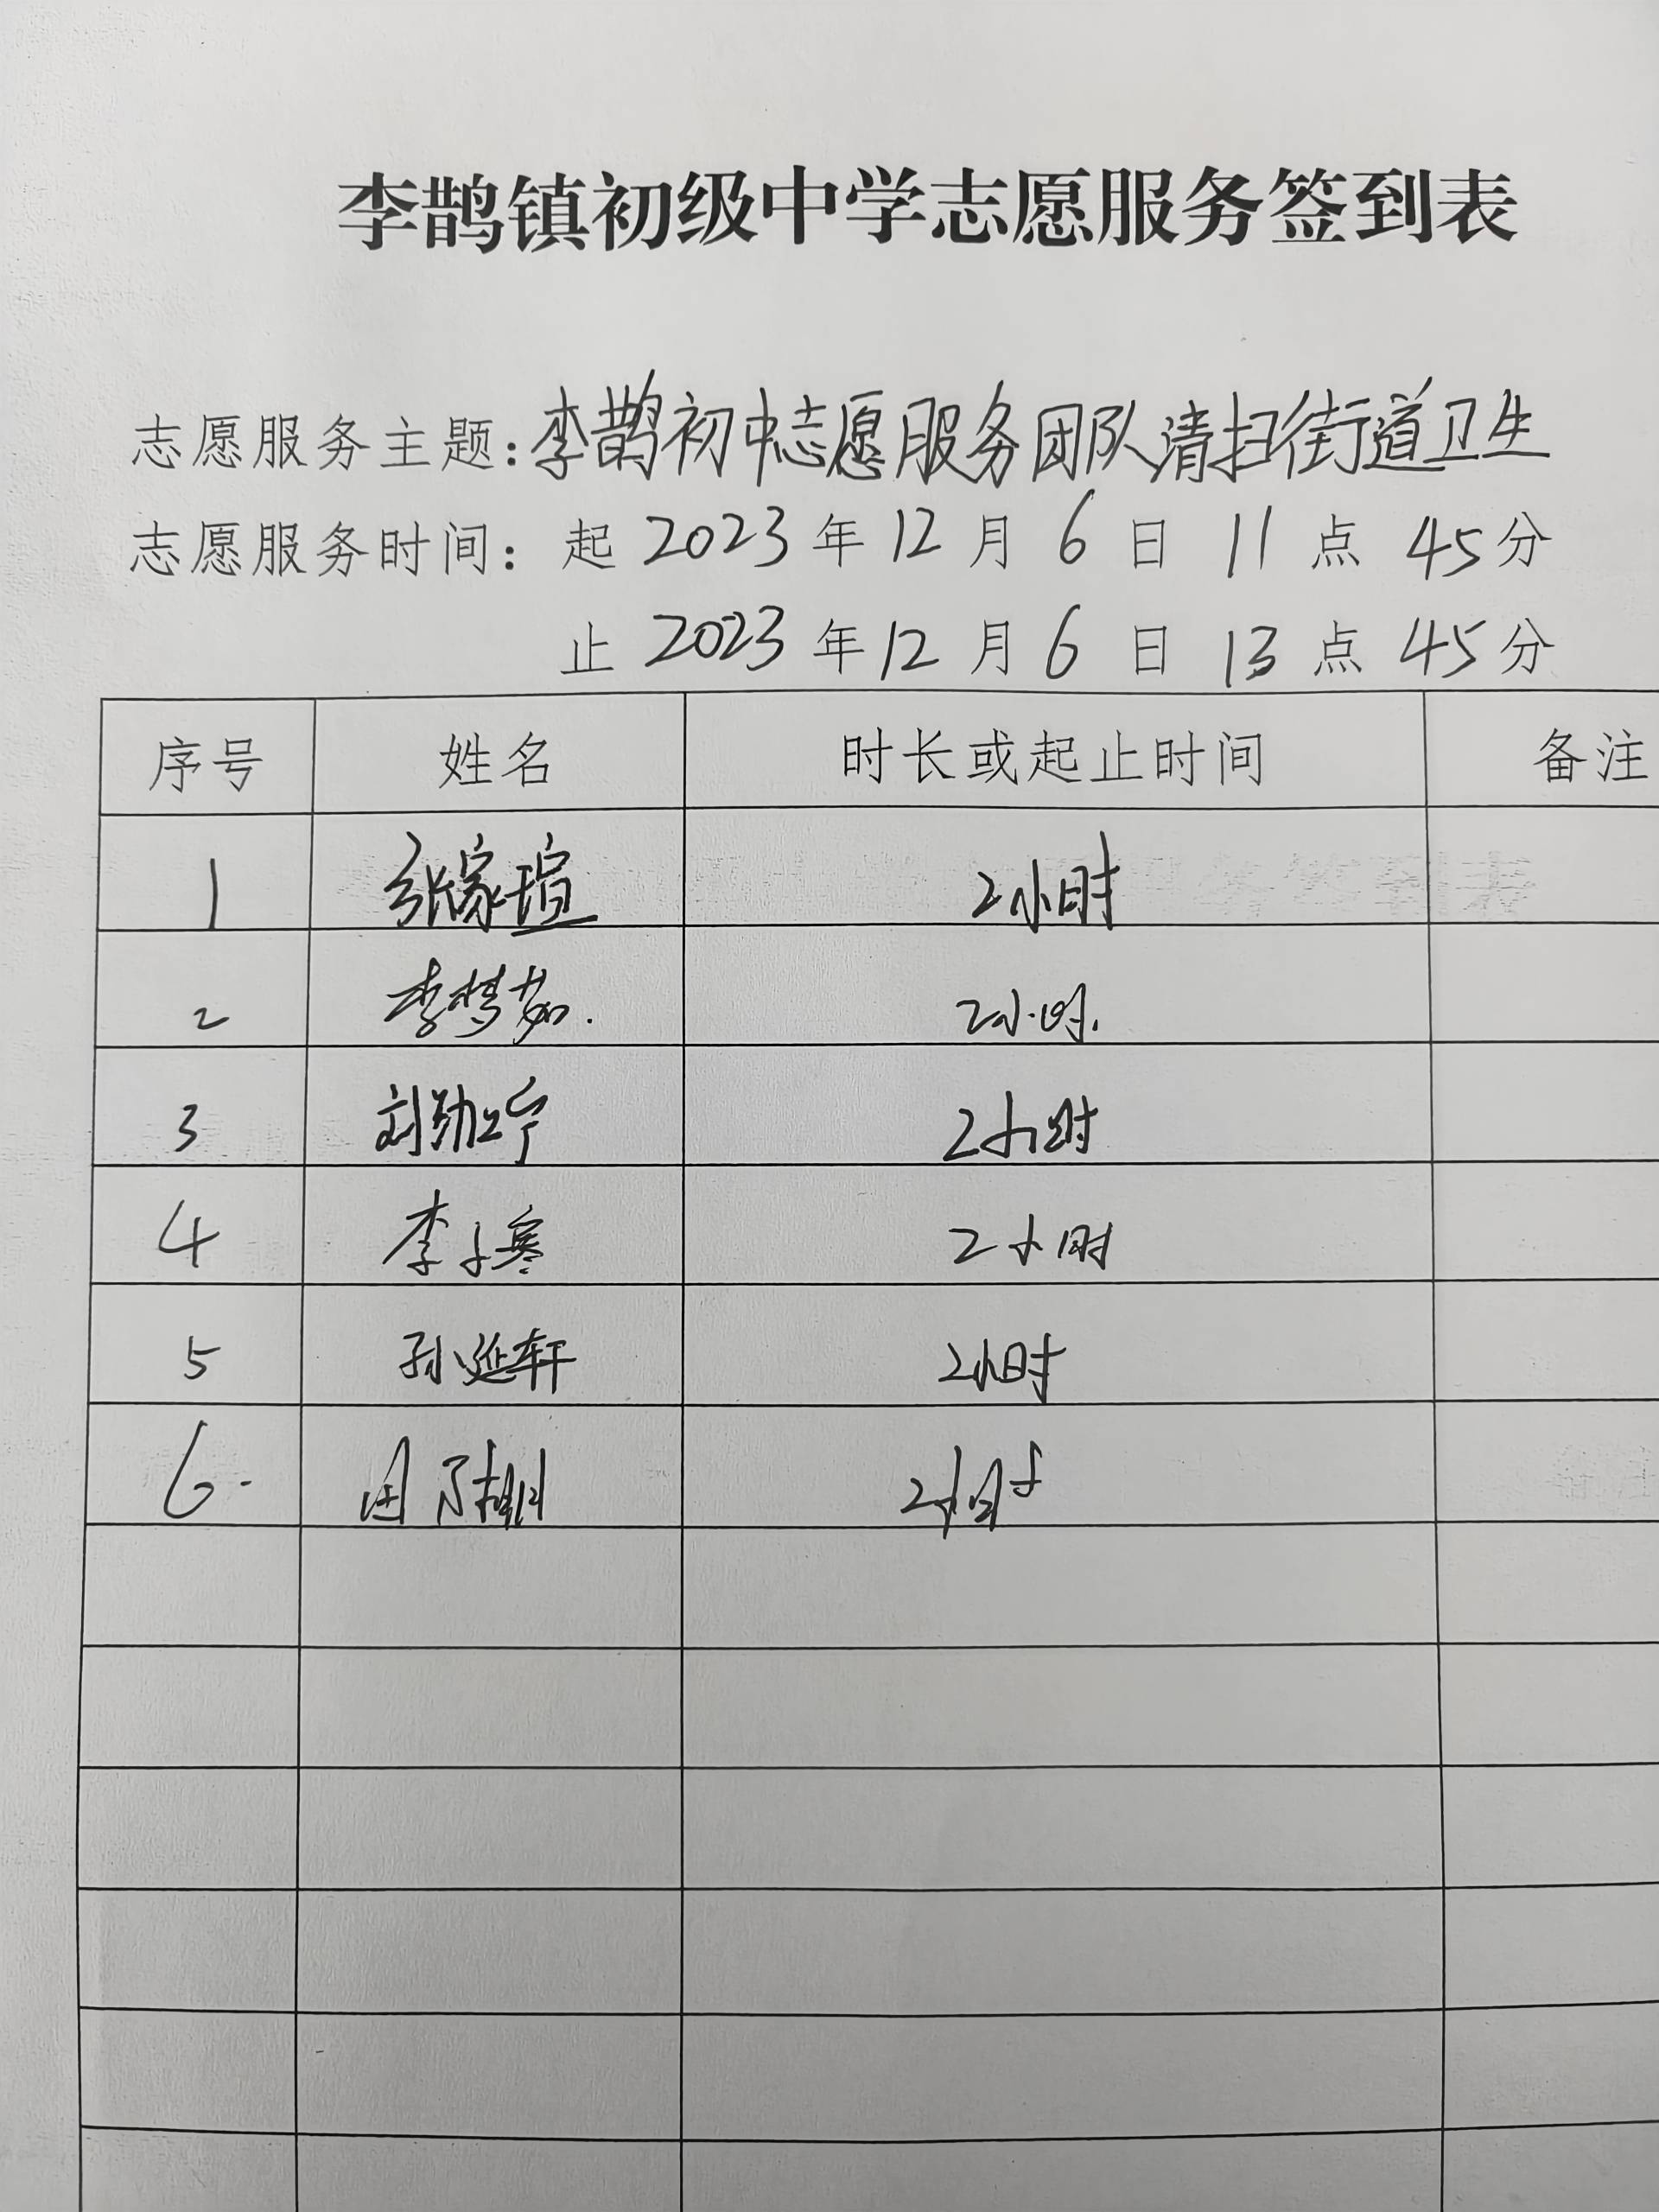 李鹊镇初级中学志愿服务签到表
志愿服务主题：李鹊初中志愿服务团队清扫街道卫生
志愿服务时间：起 2023 年 12 月 6 日 11 点 45 分
止 2023 年 12 月 6 日 13 点 45 分
序号 姓名 时长或起止时间 备注
1 张家瑄 2小时
2 李梦茹. 2小时.
3 刘勃宁 2小时
4 李子寒 2小时
5 孙延轩 2小时
6. 2小时